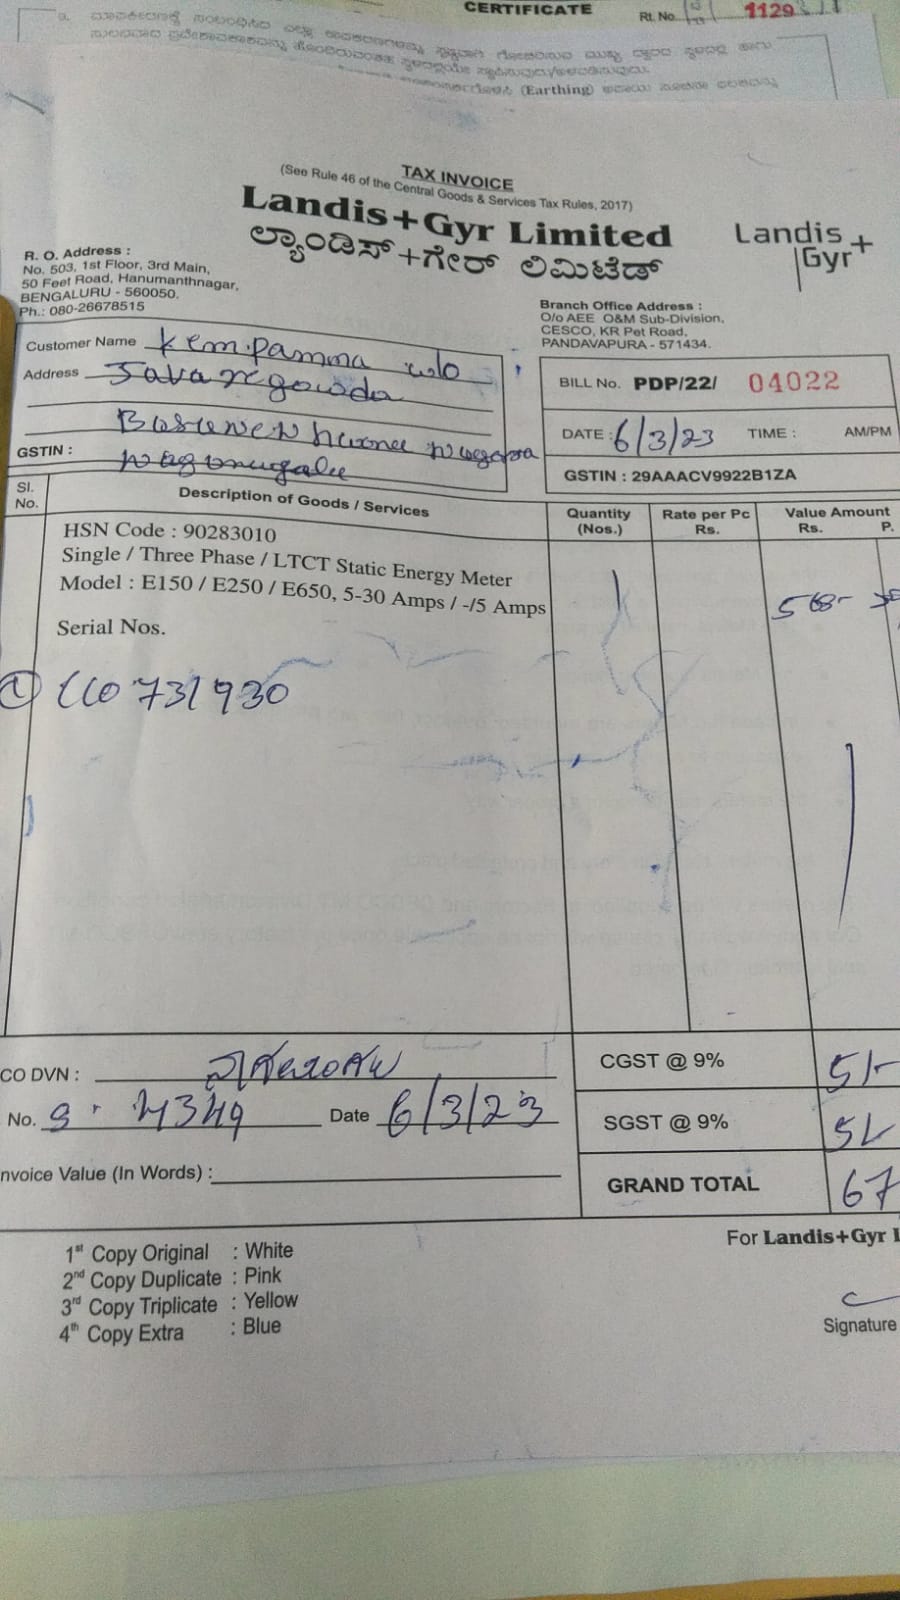 CERTIFICATE Rt. No. 1129
(Earthing)
TAX INVOICE
(See Rule 46 of the Central Goods & Services Tax Rules, 2017)
Landis+Gyr Limited
ಲ್ಯಾಂಡಿಸ್+ಗೇರ್ ಲಿಮಿಟೆಡ್
Landis
Gyr+
R. O. Address :
No. 503, 1st Floor, 3rd Main,
50 Feet Road, Hanumanthnagar,
BENGALURU - 560050.
Ph.: 080-26678515
Branch Office Address :
O/o AEE O&M Sub-Division,
CESCO, KR Pet Road,
PANDAVAPURA - 571434.
Customer Name Kempamma w/o
Address Javaregowda
GSTIN :
BILL No. PDP/22/ 04022
DATE : 6/3/23 TIME : AM/PM
GSTIN : 29AAACV9922B1ZA
Sl. No. Description of Goods / Services Quantity (Nos.) Rate per Pc Rs. Value Amount Rs. P.
HSN Code : 90283010
Single / Three Phase / LTCT Static Energy Meter
Model : E150 / E250 / E650, 5-30 Amps / -/5 Amps
568-
Serial Nos.
CO DVN :
No. Date 6/3/23
nvoice Value (In Words) :
CGST @ 9% 51-
SGST @ 9% 51-
GRAND TOTAL 67
For Landis+Gyr
1st Copy Original : White
2nd Copy Duplicate : Pink
3rd Copy Triplicate : Yellow
4th Copy Extra : Blue
Signature